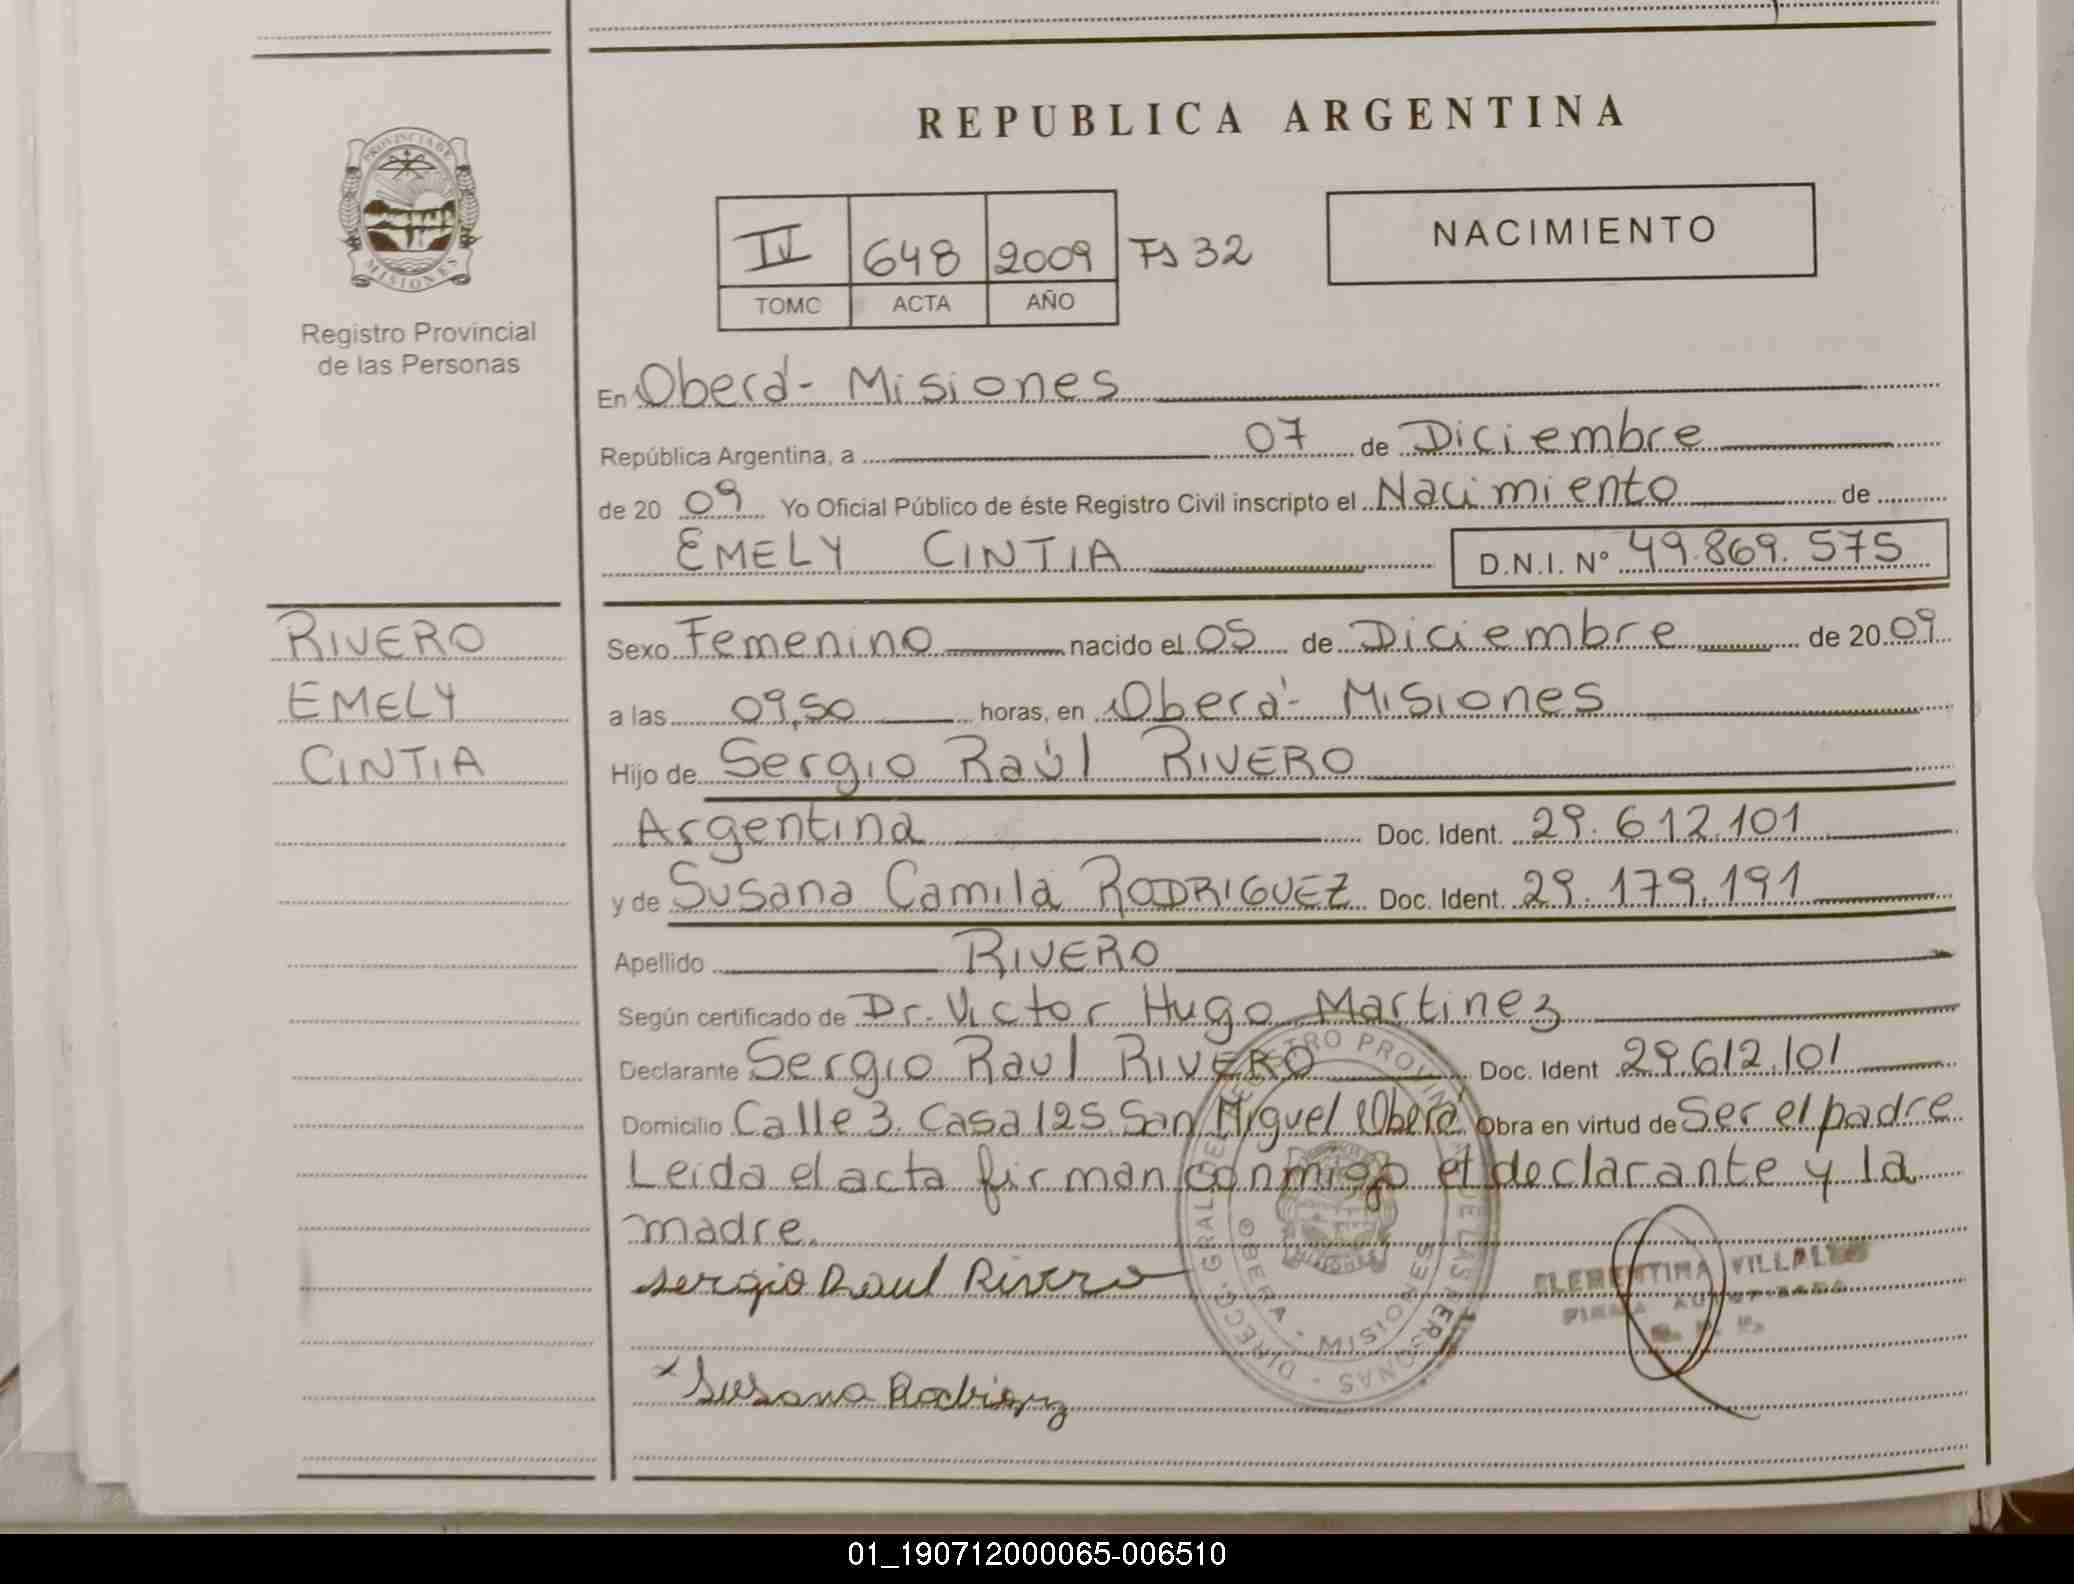 REPUBLICA ARGENTINA
PROVINCIA DE
MISIONES
Registro Provincial
de las Personas
IV 648 2009 Fs 32
TOMO ACTA AÑO
NACIMIENTO
En Oberá - Misiones
República Argentina, a 07 de Diciembre
de 20 09 Yo Oficial Público de éste Registro Civil inscripto el Nacimiento de
EMELY CINTIA D.N.I. Nº 49.869.575
RIVERO
EMELY
CINTIA
Sexo Femenino nacido el 05 de Diciembre de 20 09
a las 09,50 horas, en Oberá - Misiones
Hijo de Sergio Raúl RIVERO
Argentina Doc. Ident. 29.612.101
y de Susana Camila RODRIGUEZ Doc. Ident. 29.179.191
Apellido RIVERO
Según certificado de Dr. Victor Hugo Martinez
Declarante Sergio Raul RIVERO Doc. Ident 29.612.101
Domicilio Calle 3. Casa 125 San Miguel Oberá Obra en virtud de Ser el padre
Leida el acta firman conmigo el declarante y la
madre.
Sergio Raul Rivero
OBERA - MISIONES
Susana Rodriguez
01_190712000065-006510